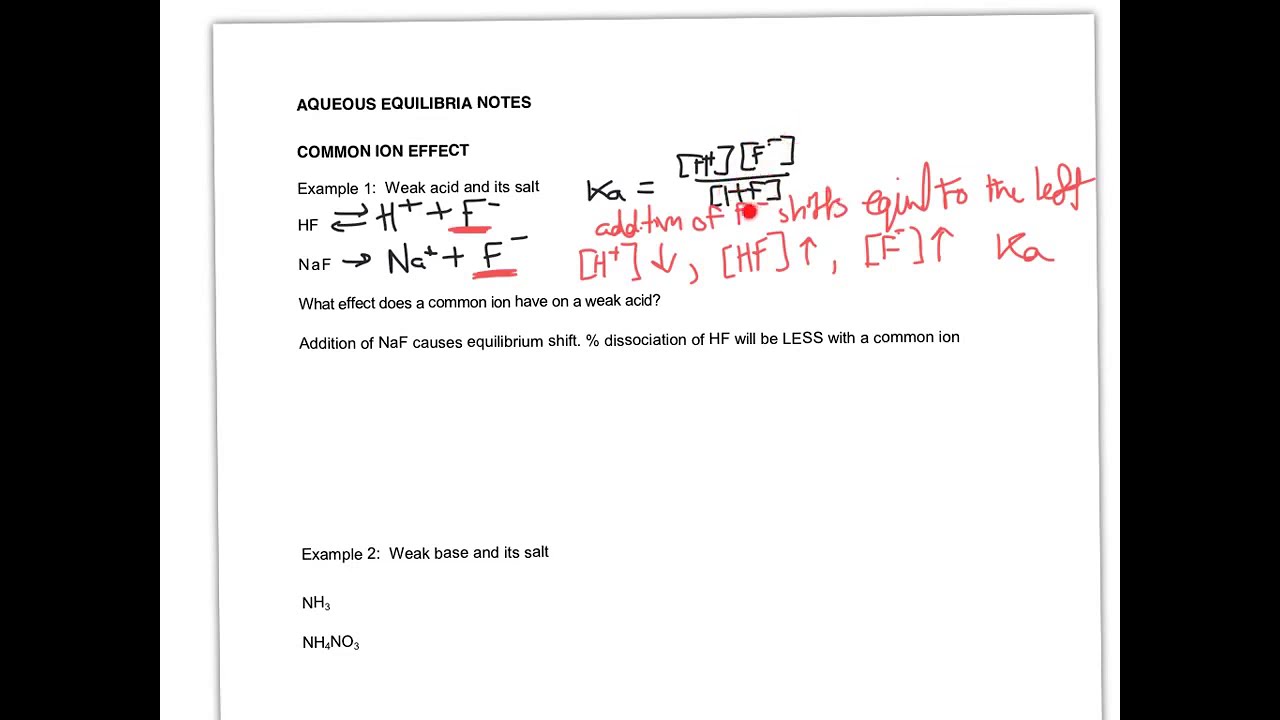 AQUEOUS EQUILIBRIA NOTES
COMMON ION EFFECT
Example 1: Weak acid and its salt
Ka = [H+][F-]/[HF]
HF ⇌ H+ + F-
addition of F- shifts equil to the left
NaF → Na+ + F-
[H+]↓, [HF]↑, [F-]↑ Ka
What effect does a common ion have on a weak acid?
Addition of NaF causes equilibrium shift. % dissociation of HF will be LESS with a common ion
Example 2: Weak base and its salt
NH3
NH4NO3